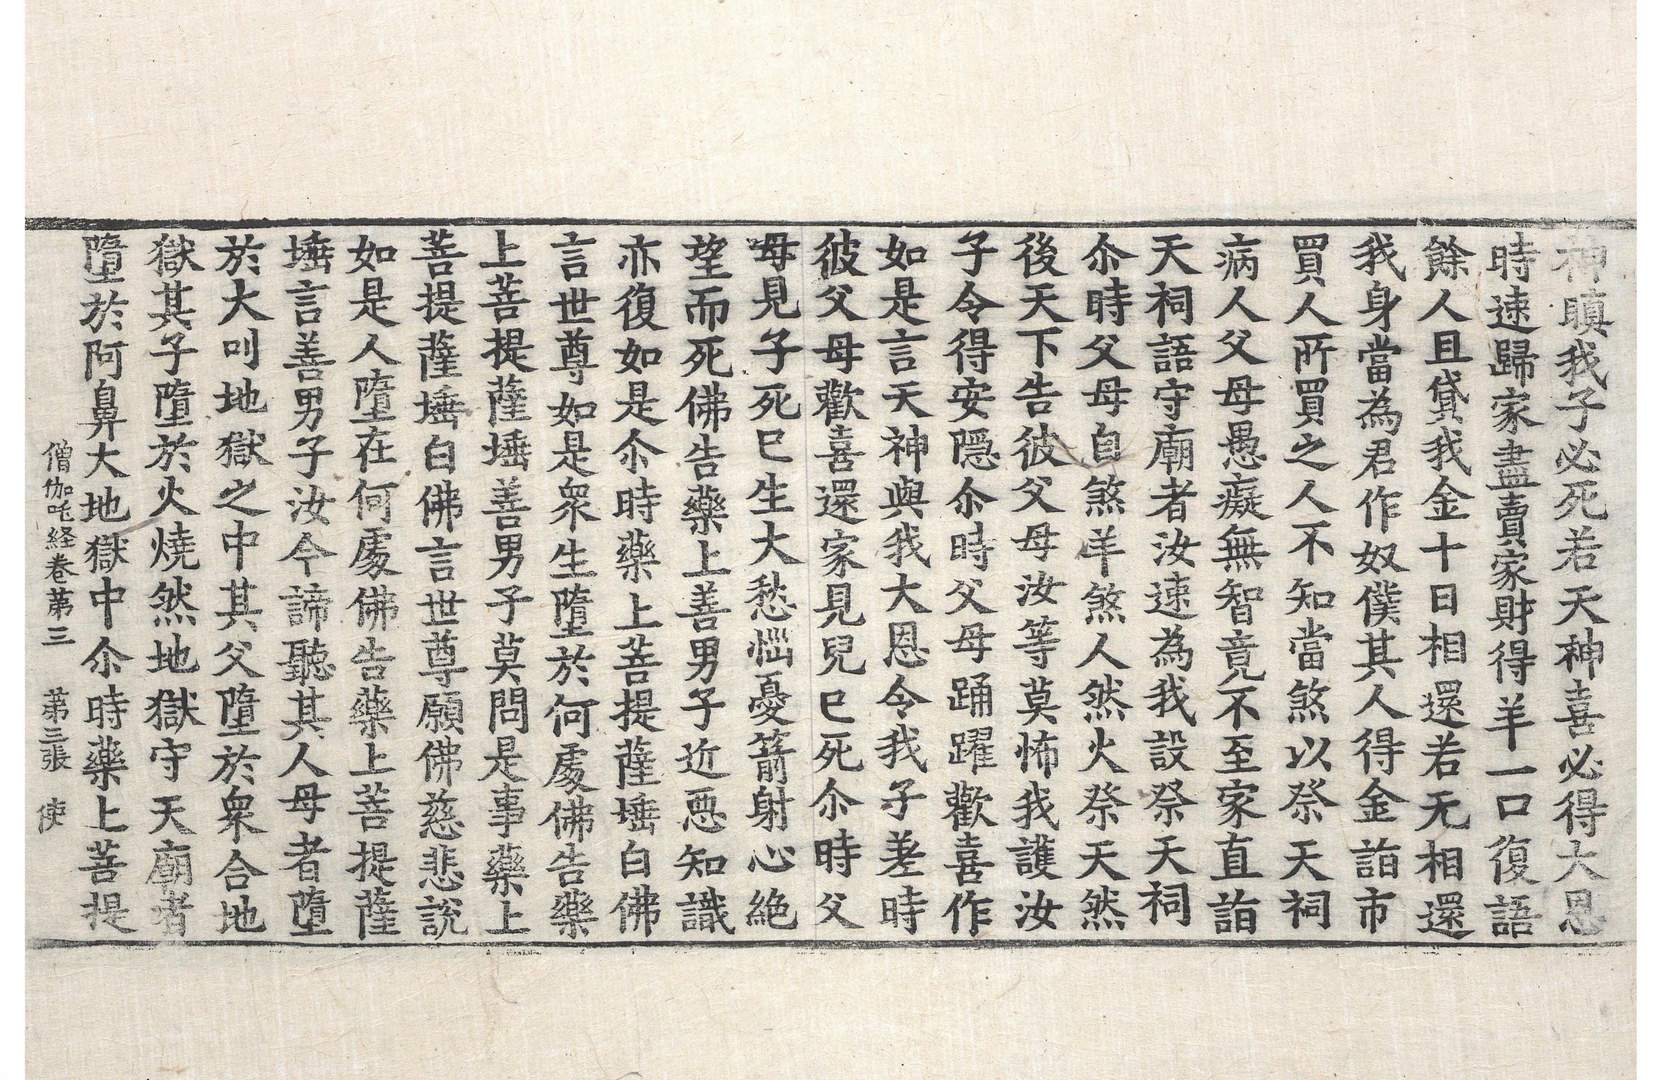 神瞋我子必死若天神喜必得大恩
時速歸家盡賣家財得羊一口復語
餘人且貸我金十日相還若无相還
我身當為君作奴僕其人得金詣市
買人所買之人不知當煞以祭天祠
病人父母愚癡無智竟不至家直詣
天祠語守廟者汝速為我設祭天祠
尒時父母自煞羊煞人然火祭天然
後天下告彼父母汝等莫怖我護汝
子令得安隱尒時父母踊躍歡喜作
如是言天神與我大恩令我子差時
彼父母歡喜還家見兒已死尒時父
母見子死已生大愁惱憂箭射心絶
望而死佛告藥上善男子近惡知識
亦復如是尒時藥上菩提薩埵白佛
言世尊如是衆生墮於何處佛告藥
上菩提薩埵善男子莫問是事藥上
菩提薩埵白佛言世尊願佛慈悲說
如是人墮在何處佛告藥上菩提薩
埵言善男子汝今諦聽其人母者墮
於大叫地獄之中其父墮於衆合地
獄其子墮於火燒然地獄守天廟者
墮於阿鼻大地獄中尒時藥上菩提
僧伽吒経卷苐三　苐三張　使